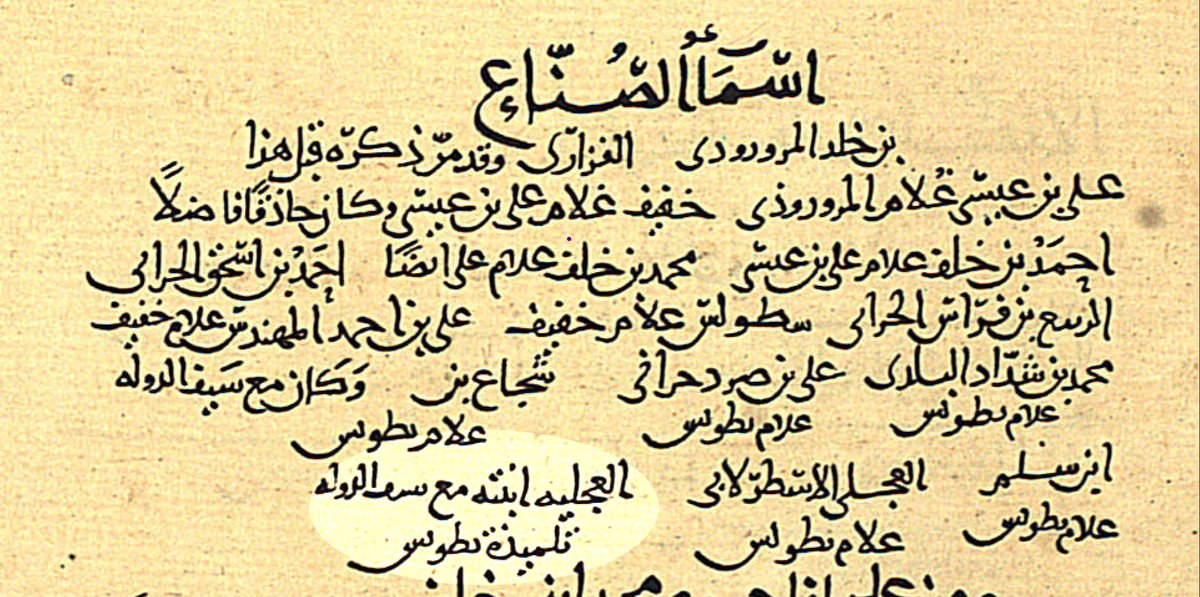 اسماء الصُنّاع
بن خلد المرورودى الفزارى وقد مرّ ذكره قبل هذا
على بن عيسى غلام المروروذى خفيف غلام على بن عيسى وكان حاذقًا فاضلًا
احمد بن خلف علام على بن عيسى محمد بن خلف علام على ايضًا احمد بن اسحق الحرانى
الربيع بن فرّاس الحرانى سطولس علام خفيف على بن احمد المهندس علام خفيف
محمد بن شدّاد البلدى على بن صرد حرانى شجاع بن وكان مع سيف الدوله
علام بطولس علام بطولس علام بطولس
ابن سلم العجلى الاسطرلابى العجليه ابنته مع سيف الدوله
علام بطولس علام بطولس تلميذة بطولس